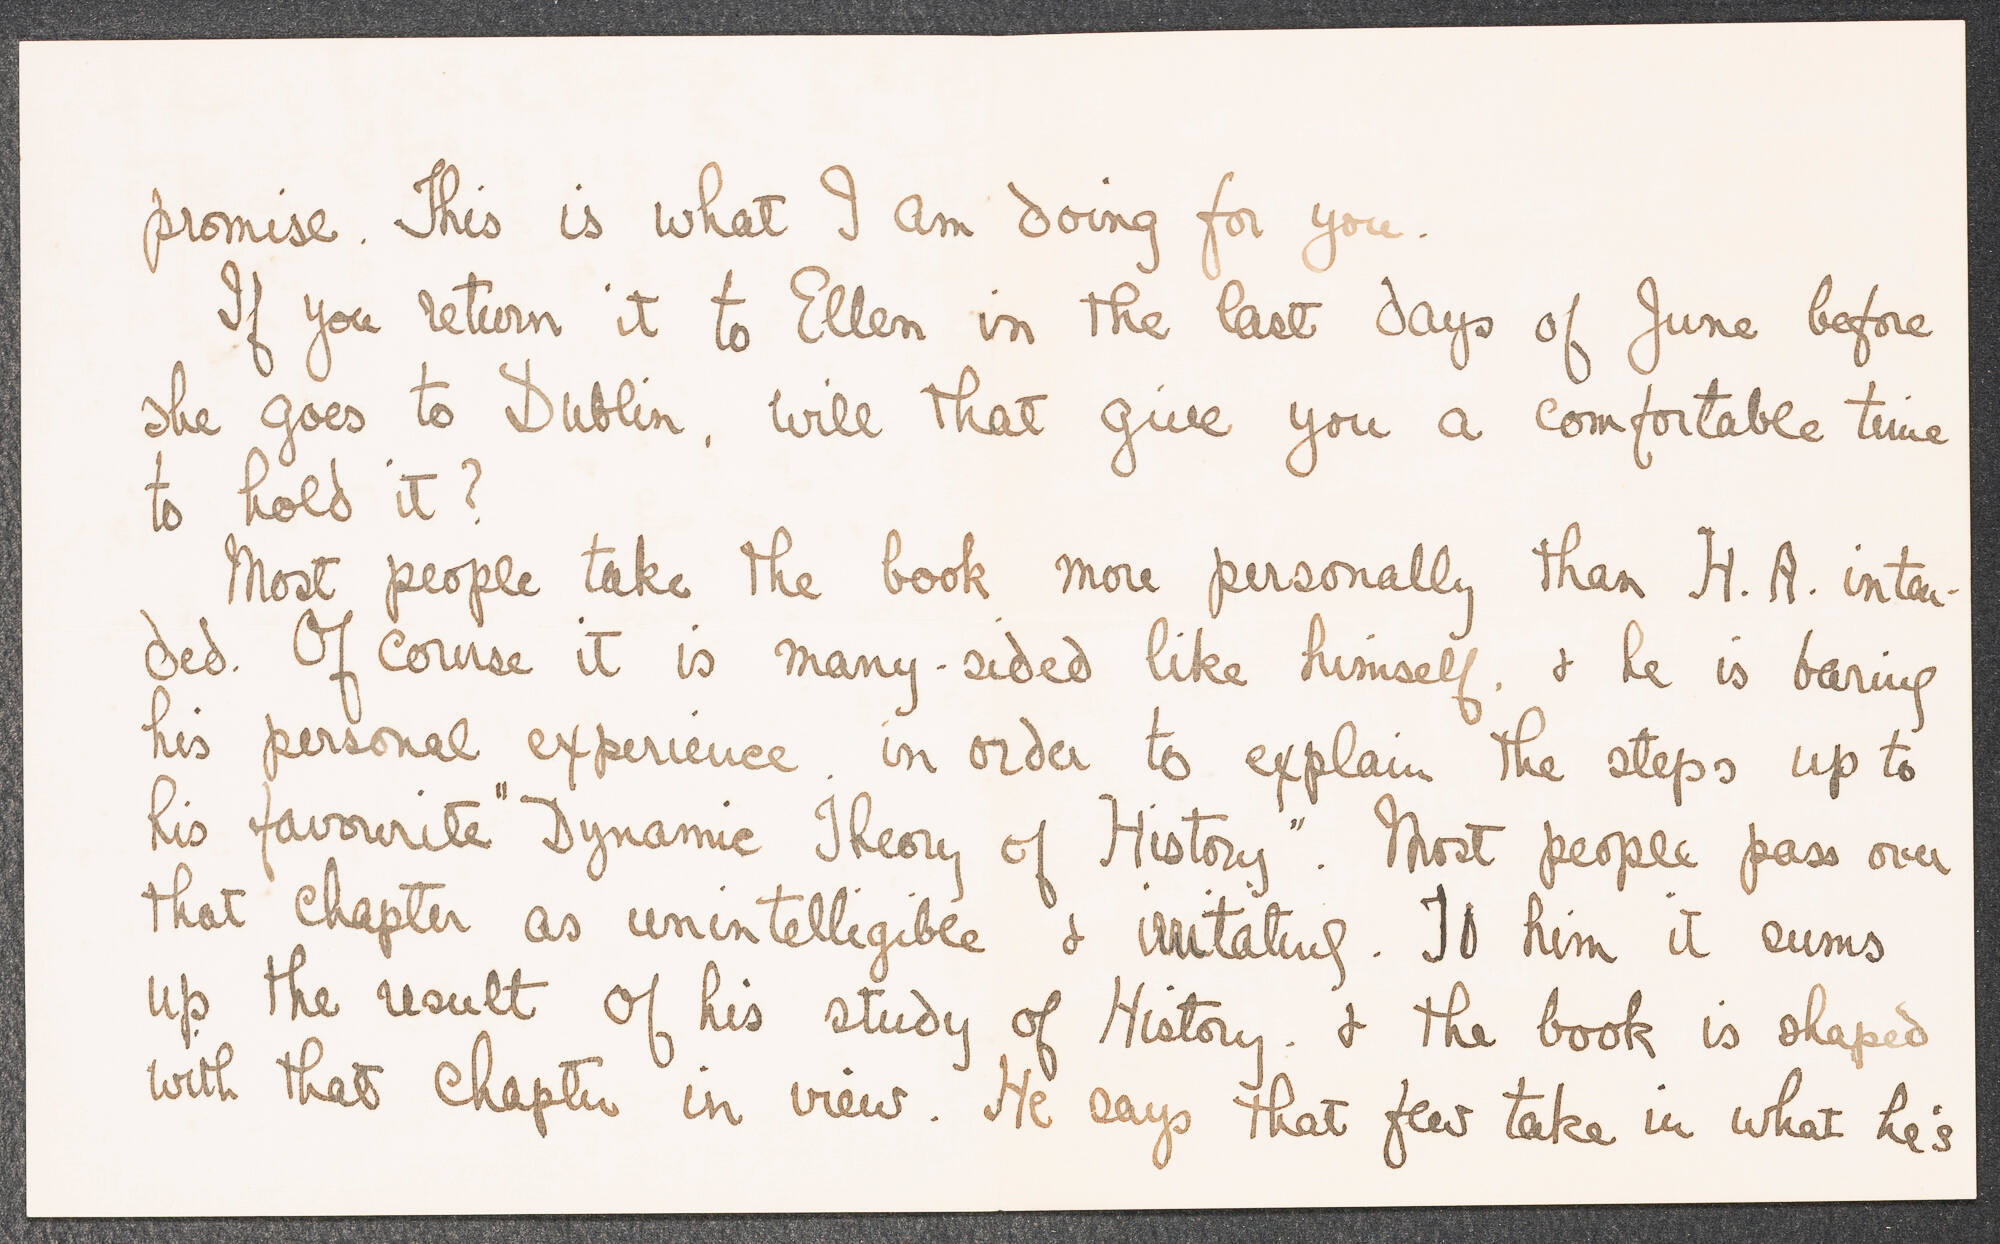 promise. This is what I am doing for you.
If you return it to Ellen in the last days of June before
she goes to Dublin, will that give you a comfortable time
to hold it?
Most people take the book more personally than H. A. inten-
ded. Of course it is many-sided like himself, & he is baring
his personal experience, in order to explain the steps up to
his favourite "Dynamic Theory of History". Most people pass over
that chapter as unintelligible & irritating. To him it sums
up the result of his study of History. & the book is shaped
with that chapter in view. He says that few take in what he's